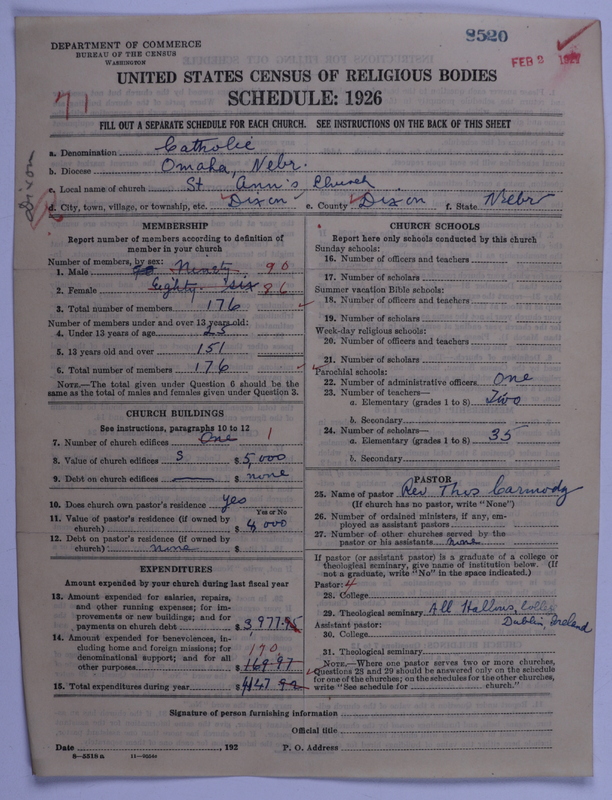 8520
DEPARTMENT OF COMMERCE
BUREAU OF THE CENSUS
WASHINGTON
FEB 8 1927
UNITED STATES CENSUS OF RELIGIOUS BODIES
SCHEDULE: 1926
71
FILL OUT A SEPARATE SCHEDULE FOR EACH CHURCH. SEE INSTRUCTIONS ON THE BACK OF THIS SHEET
Dixon
a. Denomination Catholic
b. Diocese Omaha, Nebr.
c. Local name of church St Ann's Church
d. City, town, village, or township, etc. Dixon e. County Dixon f. State Nebr
MEMBERSHIP
Report number of members according to definition of member in your church
Number of members, by sex:
1. Male Ninety 90
2. Female Eighty six 86
3. Total number of members 176
Number of members under and over 13 years old:
4. Under 13 years of age 25
5. 13 years old and over 151
6. Total number of members 176
NOTE.—The total given under Question 6 should be the
same as the total of males and females given under Question 3.
CHURCH BUILDINGS
See instructions, paragraphs 10 to 12
7. Number of church edifices One 1
8. Value of church edifices $ 5,000
9. Debt on church edifices $ none
10. Does church own pastor's residence yes
Yes or No
11. Value of pastor's residence (if owned by
church) $ 4,000
12. Debt on pastor's residence (if owned by
church) none $
EXPENDITURES
Amount expended by your church during last fiscal year
13. Amount expended for salaries, repairs,
and other running expenses; for im-
provements or new buildings; and for
payments on church debt $ 3,977.95
14. Amount expended for benevolences, in-
cluding home and foreign missions; for
denominational support; and for all
other purposes 170 $ 169.97
15. Total expenditures during year $ 4147.92
CHURCH SCHOOLS
Report here only schools conducted by this church
Sunday schools:
16. Number of officers and teachers
17. Number of scholars
Summer vacation Bible schools:
18. Number of officers and teachers
19. Number of scholars
Week-day religious schools:
20. Number of officers and teachers
21. Number of scholars
Parochial schools:
22. Number of administrative officers One
23. Number of teachers—
a. Elementary (grades 1 to 8) Two
b. Secondary
24. Number of scholars—
a. Elementary (grades 1 to 8) 35
b. Secondary
PASTOR
25. Name of pastor Rev Thos Carmody
(If church has no pastor, write "None")
26. Number of ordained ministers, if any, em-
ployed as assistant pastors
27. Number of other churches served by the
pastor or his assistants none
If pastor (or assistant pastor) is a graduate of a college or
theological seminary, give name of institution below. (If
not a graduate, write "No" in the space indicated.)
Pastor: 4
28. College
29. Theological seminary All Hallows, College
Dublin, Ireland
Assistant pastor:
30. College
31. Theological seminary
NOTE.—Where one pastor serves two or more churches,
Questions 28 and 29 should be answered only on the schedule
for one of the churches; on the schedules for the other churches,
write "See schedule for church."
Signature of person furnishing information
Official title
Date , 192 P. O. Address
8—5318a